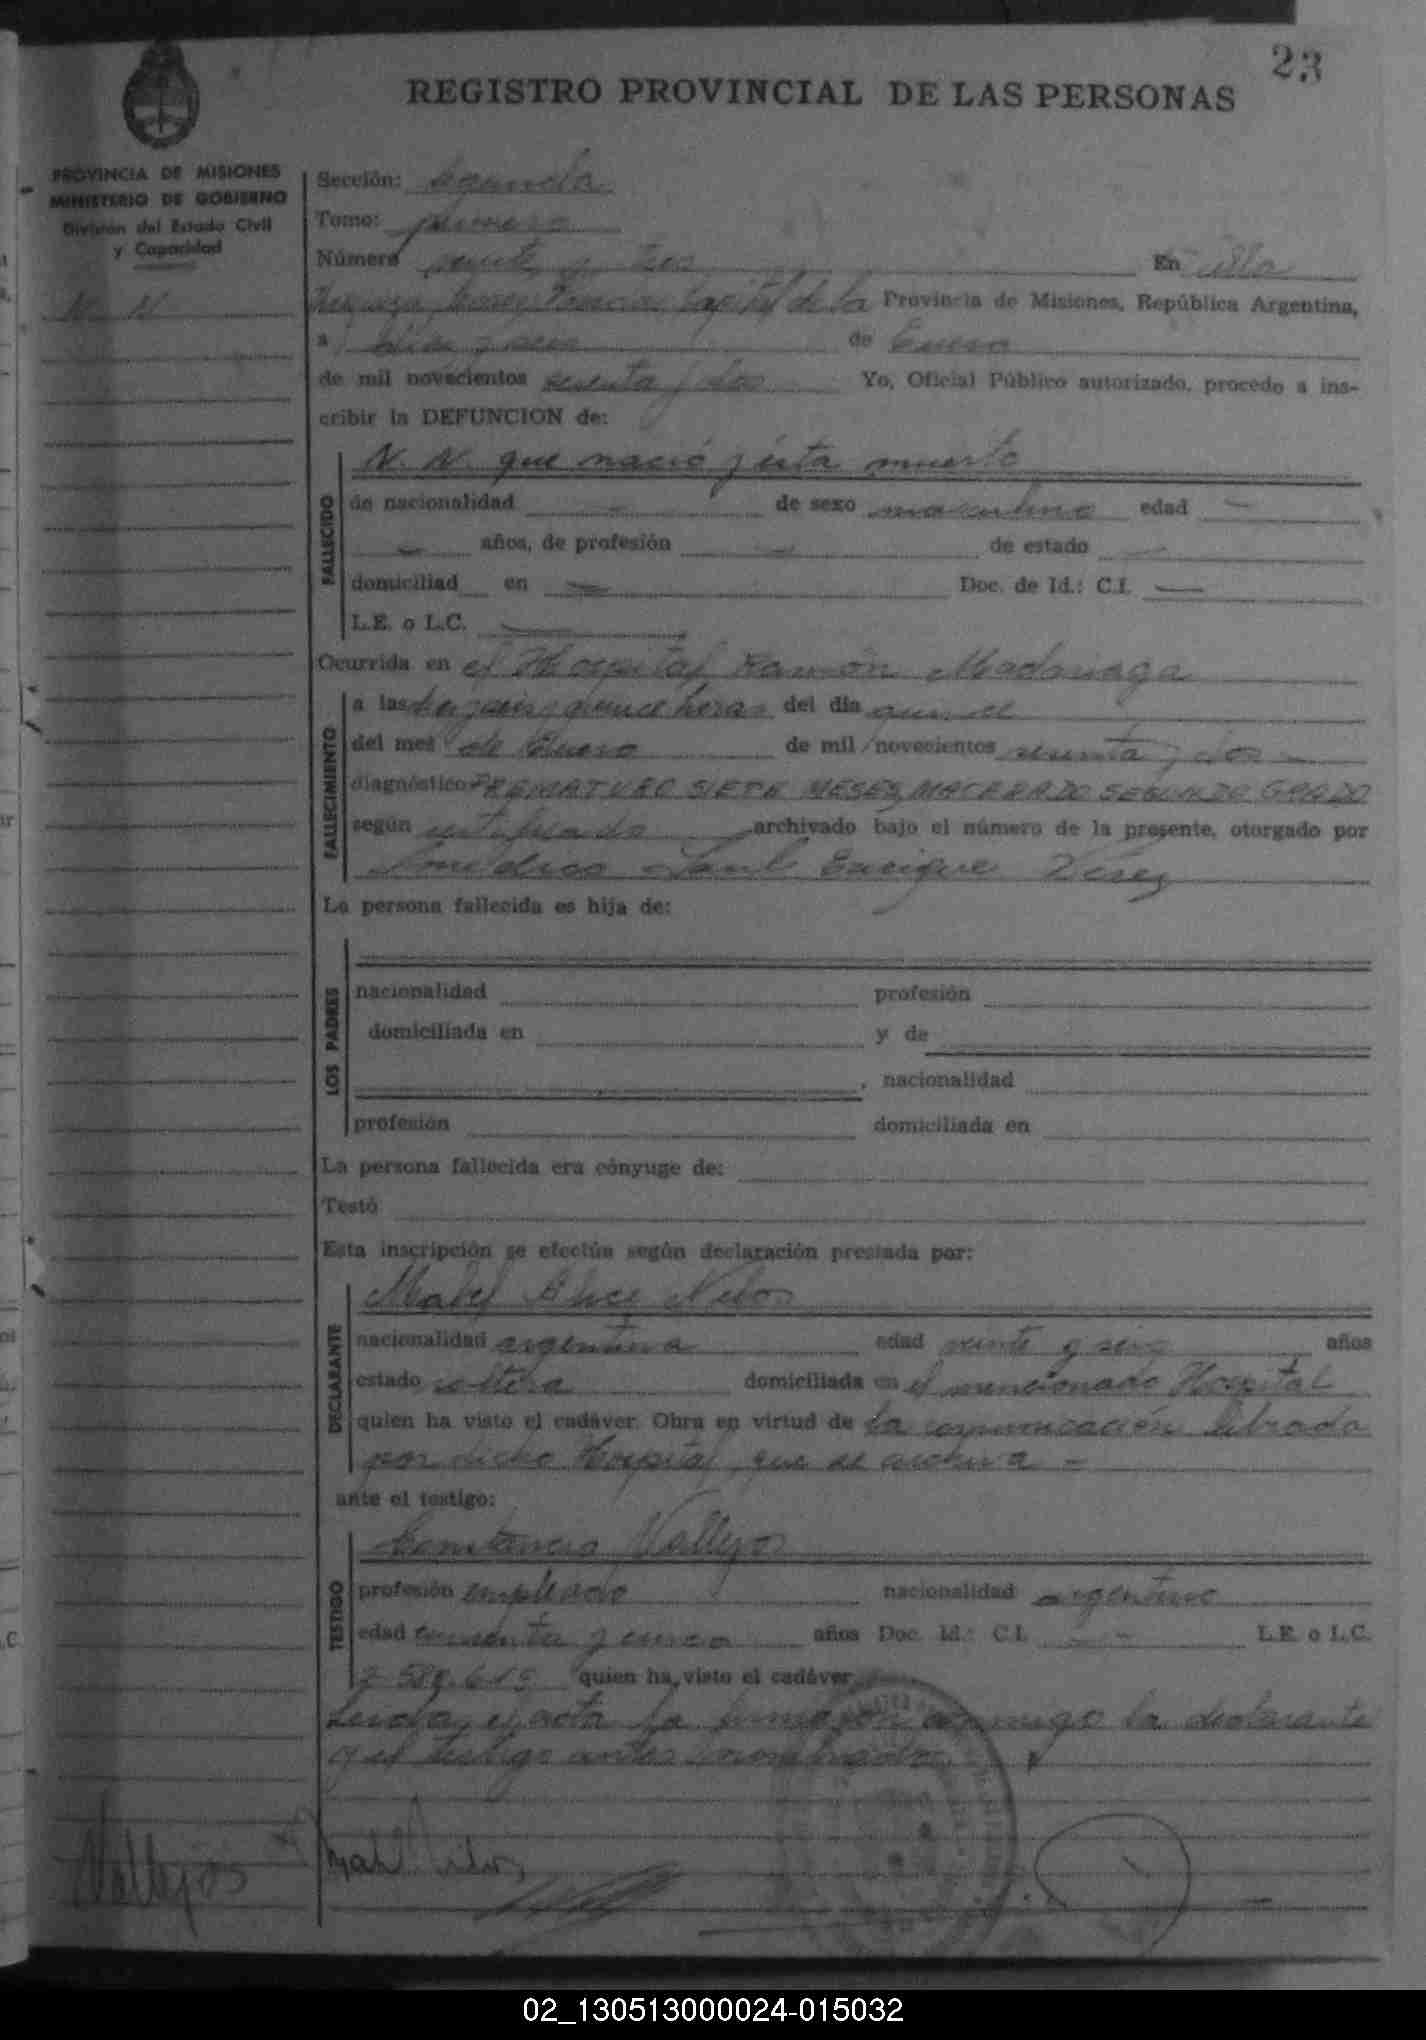 23
REGISTRO PROVINCIAL DE LAS PERSONAS
PROVINCIA DE MISIONES
MINISTERIO DE GOBIERNO
División del Estado Civil
y Capacidad
N. N
Sección: Segunda
Tomo: primero
Número veinte y tres En
Capital de la Provincia de Misiones, República Argentina,
a diez y seis de Enero
de mil novecientos sesenta y dos Yo, Oficial Público autorizado, procedo a ins-
cribir la DEFUNCION de:
N. N. que nació y está muerto
FALLECIDO
de nacionalidad - de sexo masculino edad -
- años, de profesión - de estado -
domiciliad en - Doc. de Id.: C.I. -
L.E. o L.C. -
Ocurrida en el Hospital Ramón Madariaga
FALLECIMIENTO
a las diez y seis y quince horas del dia quince
del mes de Enero de mil novecientos sesenta y dos -
diagnóstico PREMATURO SIETE MESES, MACERADO SEGUNDO GRADO
según certificado archivado bajo el número de la presente, otorgado por
médico Saul Enrique Perez
La persona fallecida es hija de:
LOS PADRES
nacionalidad profesión
domiciliada en y de
, nacionalidad
profesión domiciliada en
La persona fallecida era cónyuge de:
Testó
Esta inscripción se efectúa según declaración prestada por:
DECLARANTE
Mabel
nacionalidad argentina edad veinte y seis años
estado soltera domiciliada en el mencionado Hospital
quien ha visto el cadáver. Obra en virtud de la comunicación librada
por dicho Hospital que se archiva -
ante el testigo:
TESTIGO
Constancio Vallejos
profesión empleado nacionalidad argentino
edad y cinco años Doc. Id.: C.I. - - L.E. o L.C.
quien ha visto el cadáver.
Leida el acta la conmigo la declarante
y el testigo antes
Vallejos
02_130513000024-015032